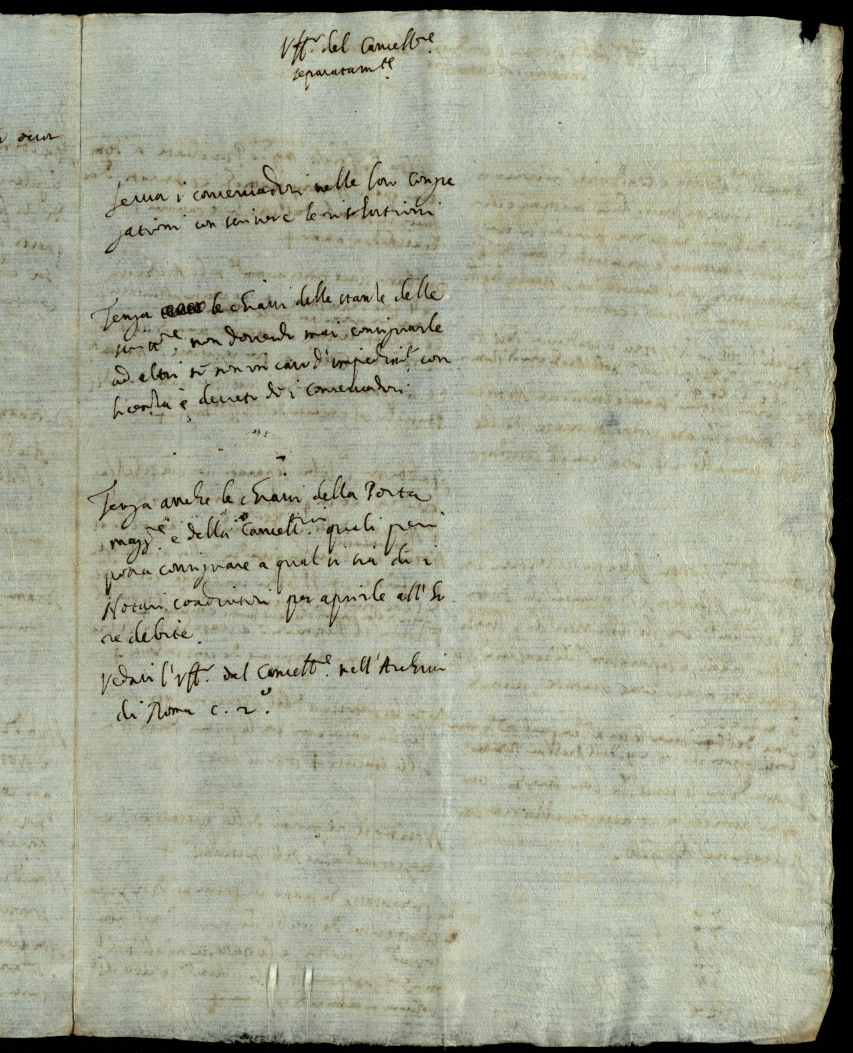 Uff.o del Cancell.re
separatam.te
Serva i conservadori nelle loro congre
gationi con scrivere le risolutioni
Tenga le chiavi delle stanze delle
scritt.re, non dovendo mai consignarle
ad altri se non in caso d'impedim.to con
licenza e decreto de i conservadori.
Tenga anche le chiavi della Porta
magg.re e della Cancell.ria quali però
possa consignare a qual si sia di i
Notari coadiutori per aprirle all'ho
re debite.
Vedasi l'Uff.o del Cancell.re nell'Archivi
di Roma c. 2.o